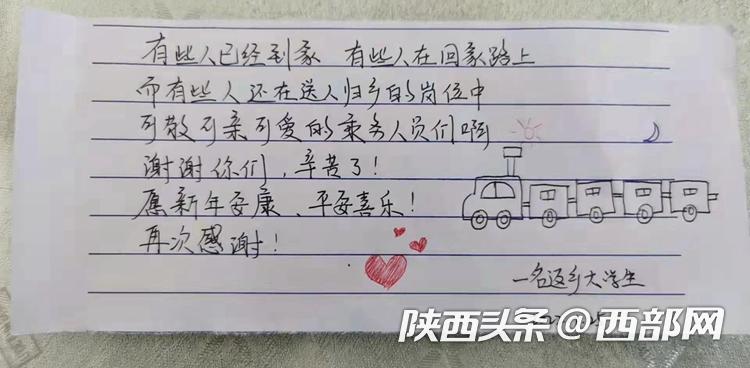 有些人已经到家 有些人在回家路上
而有些人还在送人归乡的岗位中
可敬可亲可爱的乘务人员们啊
谢谢你们，辛苦了！
愿新年安康、平安喜乐！
再次感谢！
一名返乡大学生
陕西头条 @西部网